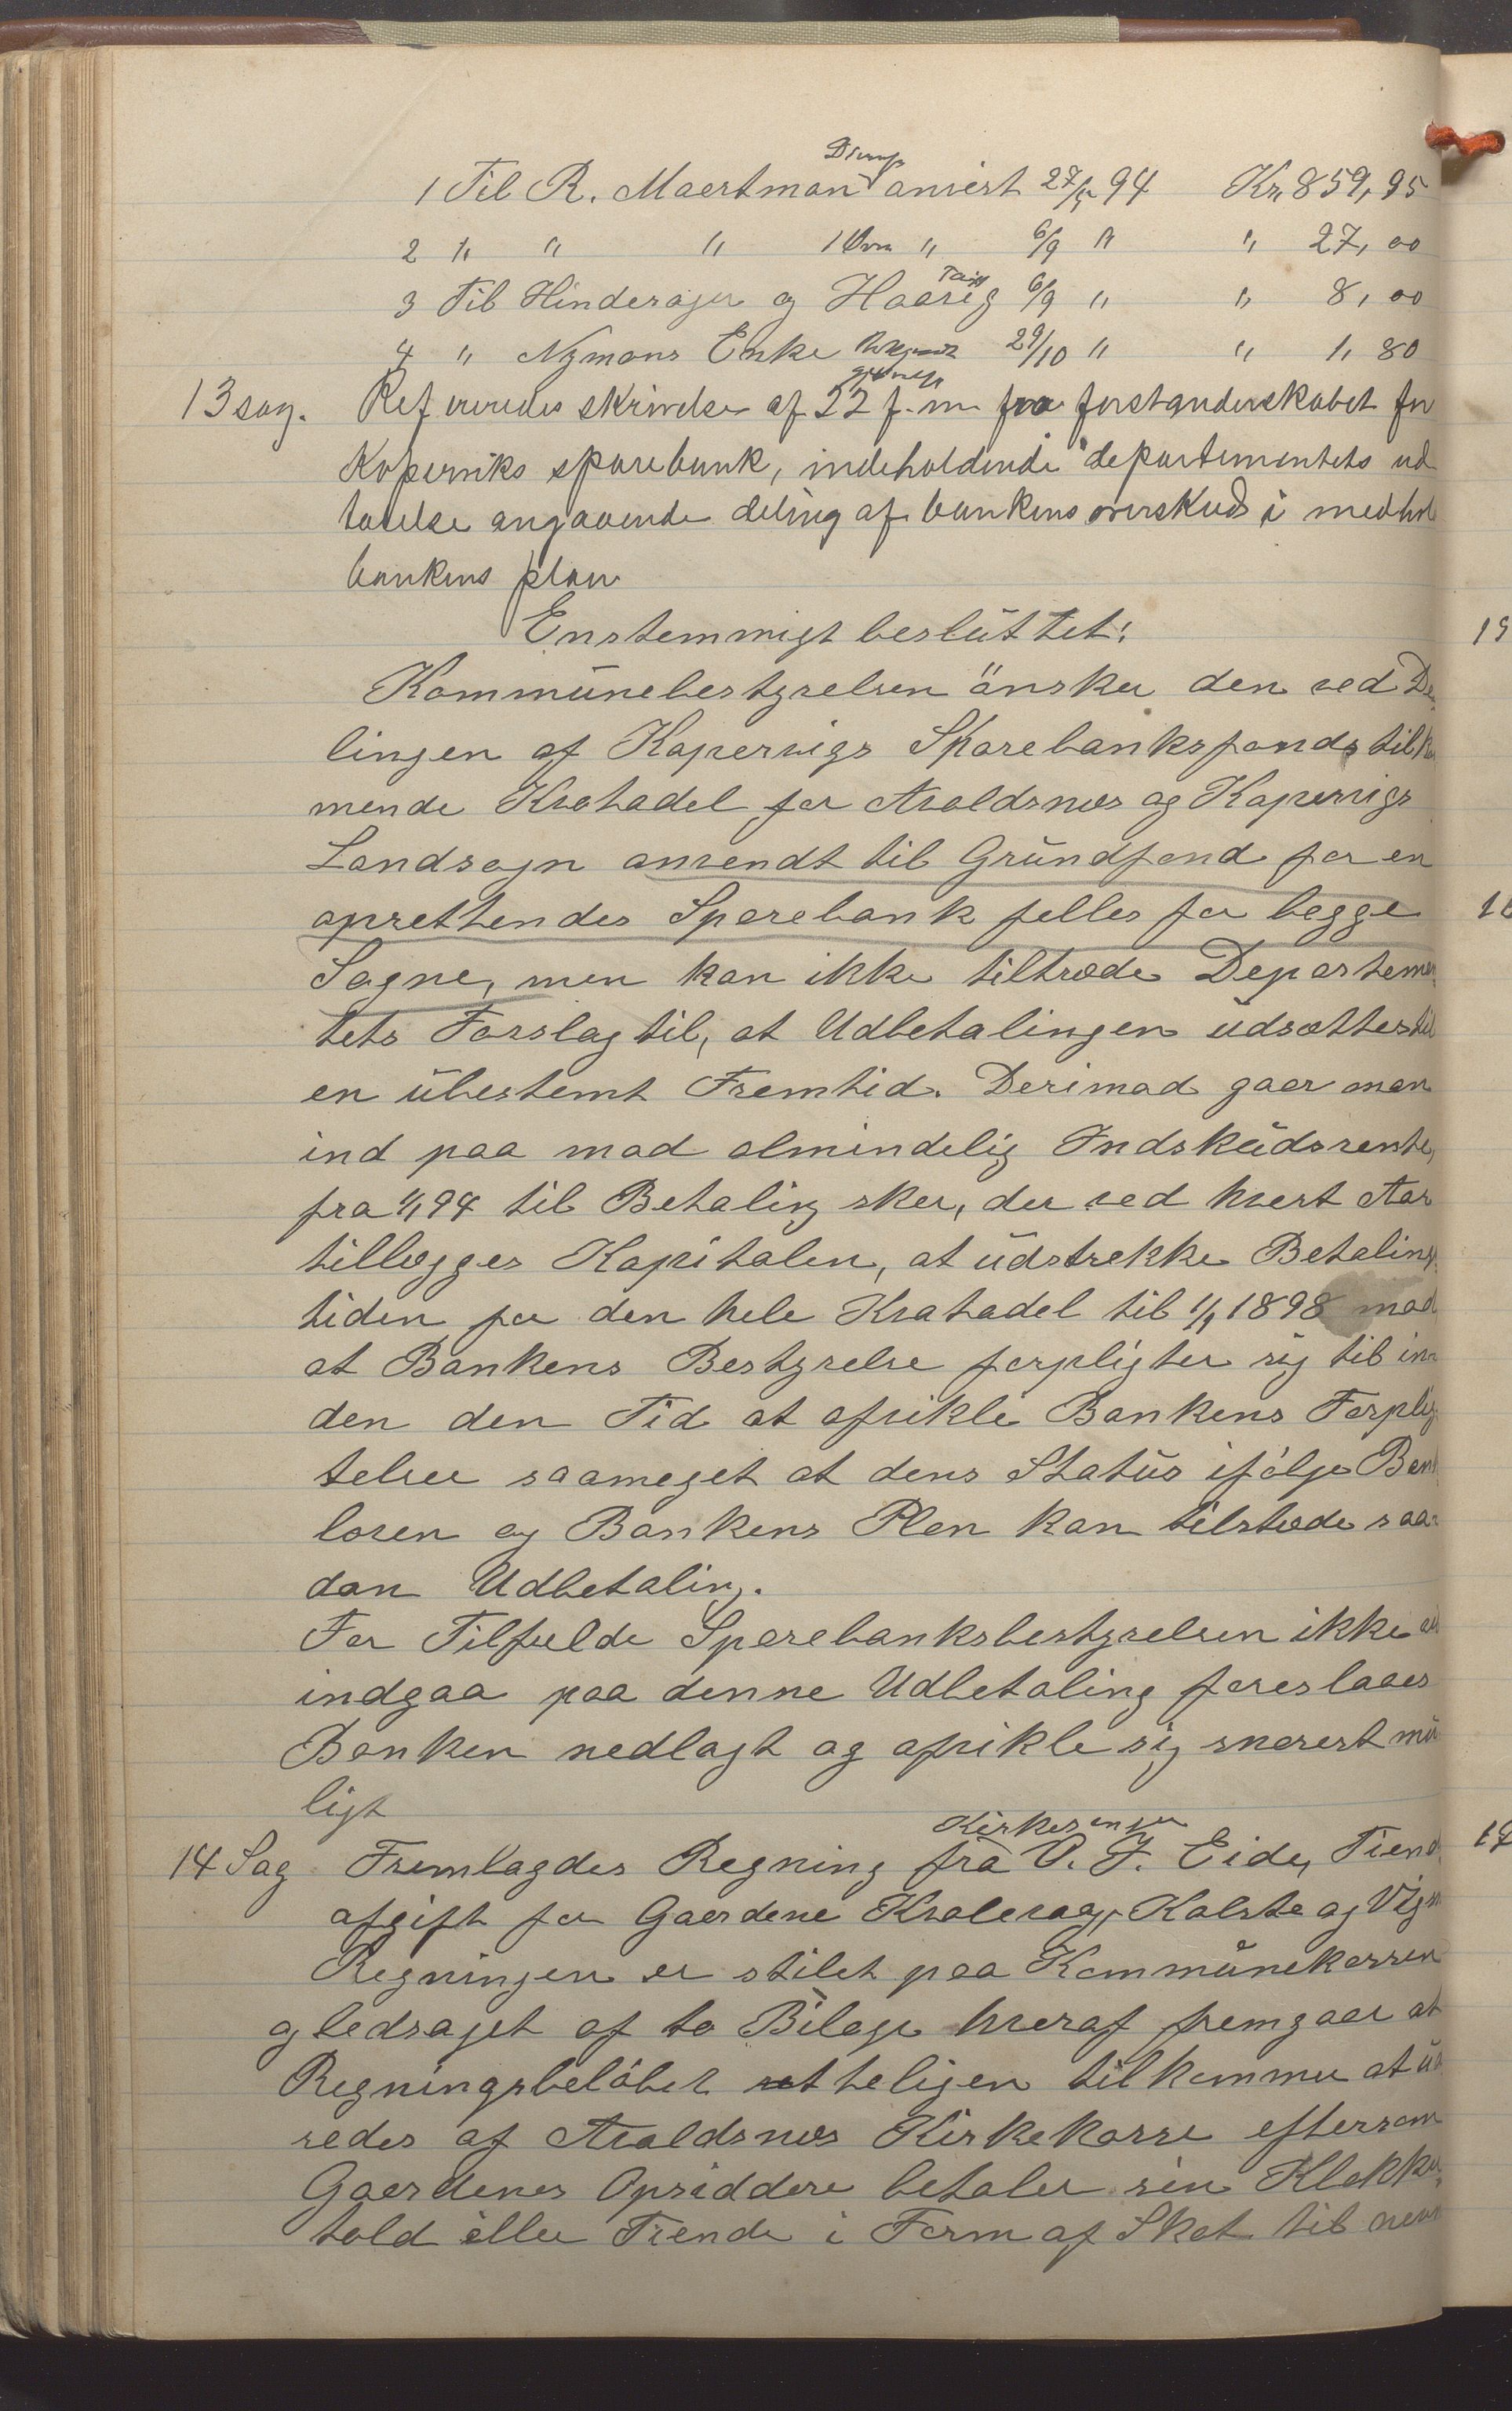 1 Til R. Maertman anvist 27/5 94 Kr. 859,95
2 " " " 1 Ovn " 6/9 " " 27,00
3 Til Hinderager og Haarig 6/9 " " 8,00
4 " Nymans Enke 29/10 " " 1,80
13 sag. Refereredes skrivelse af 22 f. m. fra forstanderskabet for
Koperviks sparebank, indeholdende departementets ud
talelse angaaende deling af bankens overskud i medhol
bankens plan
Enstemmigt beslüttet:
Kommünebestyrelsen önsker den ved De
lingen af Kopervigs Sparebanksfonds tilko
mende Kvotadel for Avaldsnæs og Kopervigs
Landsogn anvendt til Gründfond for en
oprettendes Sparebank felles for begge
Sogne, men kan ikke tiltræde Departemen
tets Forslag til, at Udbetalingen üdsættes til
en übestemt Fremtid. Derimod gaar man
ind paa mod almindelig Indsküdsrente,
fra 1/1 94 til Betaling sker, der ved hvert Aar
tillægges Kapitalen, at üdstrekke Betalings
tiden for den hele Kvotadel til 1/1 1898 mod
at Bankens Bestyrelse forpligter sig til in
den den Tid at afvikle Bankens Forplig
telser saameget at dens Statüs ifölge Bank
loven og Bankens Plan kan tilstæde saa
dan Udbetaling.
For Tilfælde Sparebanksbestyrelsen ikke
indgaa paa denne Udbetaling foreslaaes
Banken nedlagt og afvikle sig snarest mü
ligt
Kirkesanger
14 Sag Fremlagdes Regning fra O. J. Eide, Tiend
afgift for Gaardene Kvalevaag, Kolstø og
Regningen er stilet paa Kommünekassen
og ledsaget af to Bilage hvoraf fremgaar at
Regningsbelöbet retteligen tilkommer at üd
redes af Avaldsnæs Kirkekasse eftersom
Gaardenes Opsiddere betaler sin Klokker
told eller Tiende i Form af Skat til
15
16
17